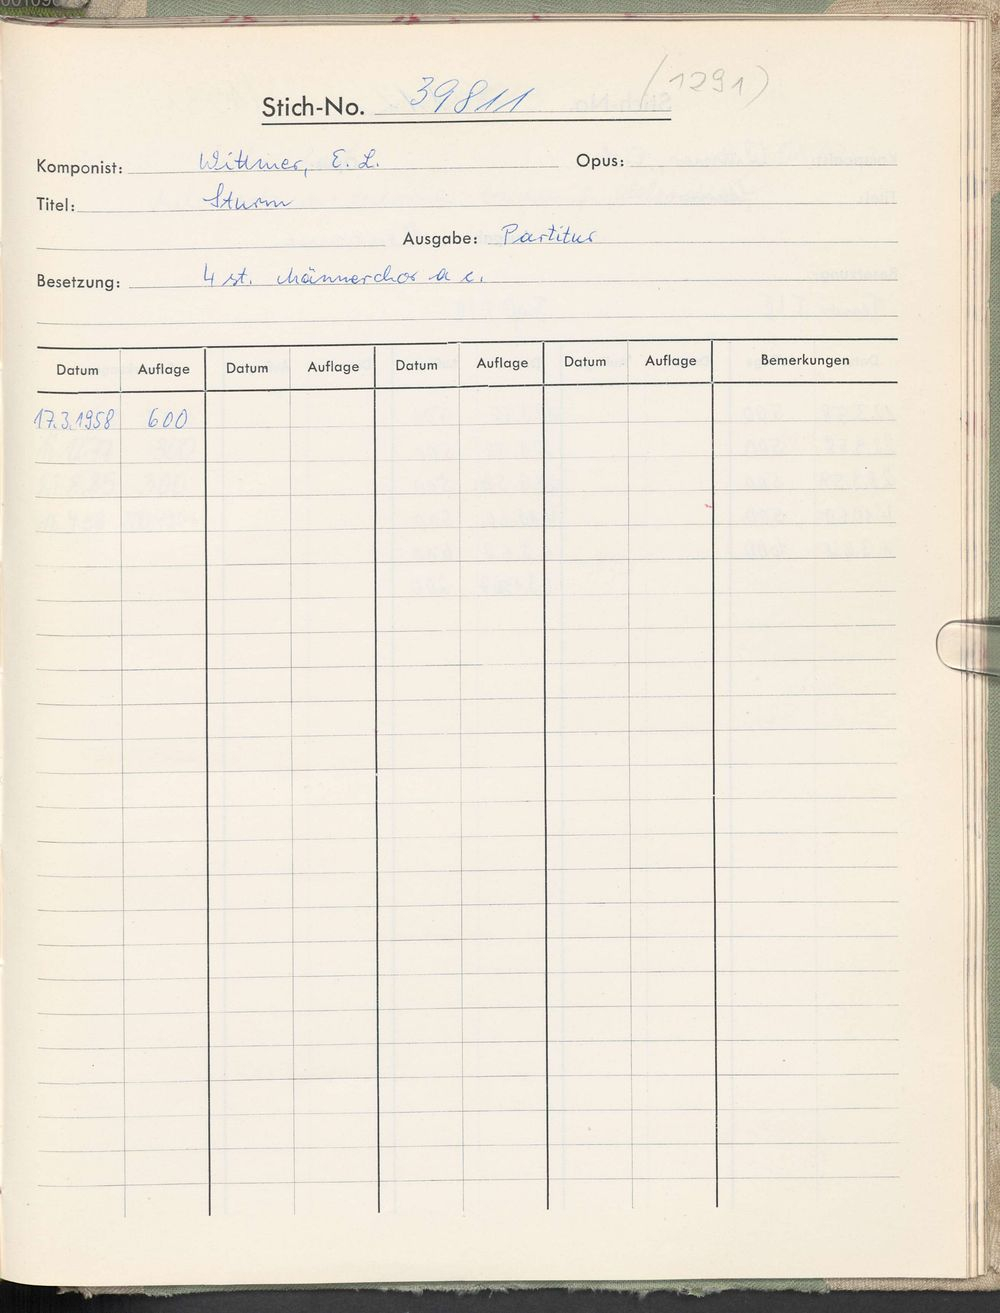 (1291)
Stich-No. 39811
Komponist: Wittmer, E. L. Opus:
Titel: Sturm
Ausgabe: Partitur
Besetzung: 4 st. Männerchor a c.
Datum Auflage Datum Auflage Datum Auflage Datum Auflage Bemerkungen
17.3.1958 600